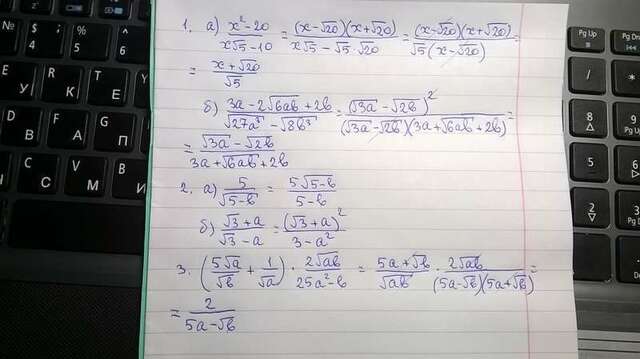 1. а) (x²-20)/(x√5-10) = ((x-√20)(x+√20))/(x√5-√5·√20) = ((x-√20)(x+√20))/(√5(x-√20)) =
= (x+√20)/√5
б) (3a-2√6ab+2b)/(√27a³-√8b³) = (√3a-√2b)²/((√3a-√2b)(3a+√6ab+2b)) =
= (√3a-√2b)/(3a+√6ab+2b)
2. а) 5/√5-b = 5√5-b/(5-b)
б) (√3+a)/(√3-a) = (√3+a)²/(3-a²)
3. (5√a/√b + 1/√a) · 2√ab/(25a²-b) = (5a+√b)/√ab · 2√ab/((5a-√b)(5a+√b)) =
= 2/(5a-√b)
Pg Up
Pg Dn
8
5
2
У
К
В
А
П